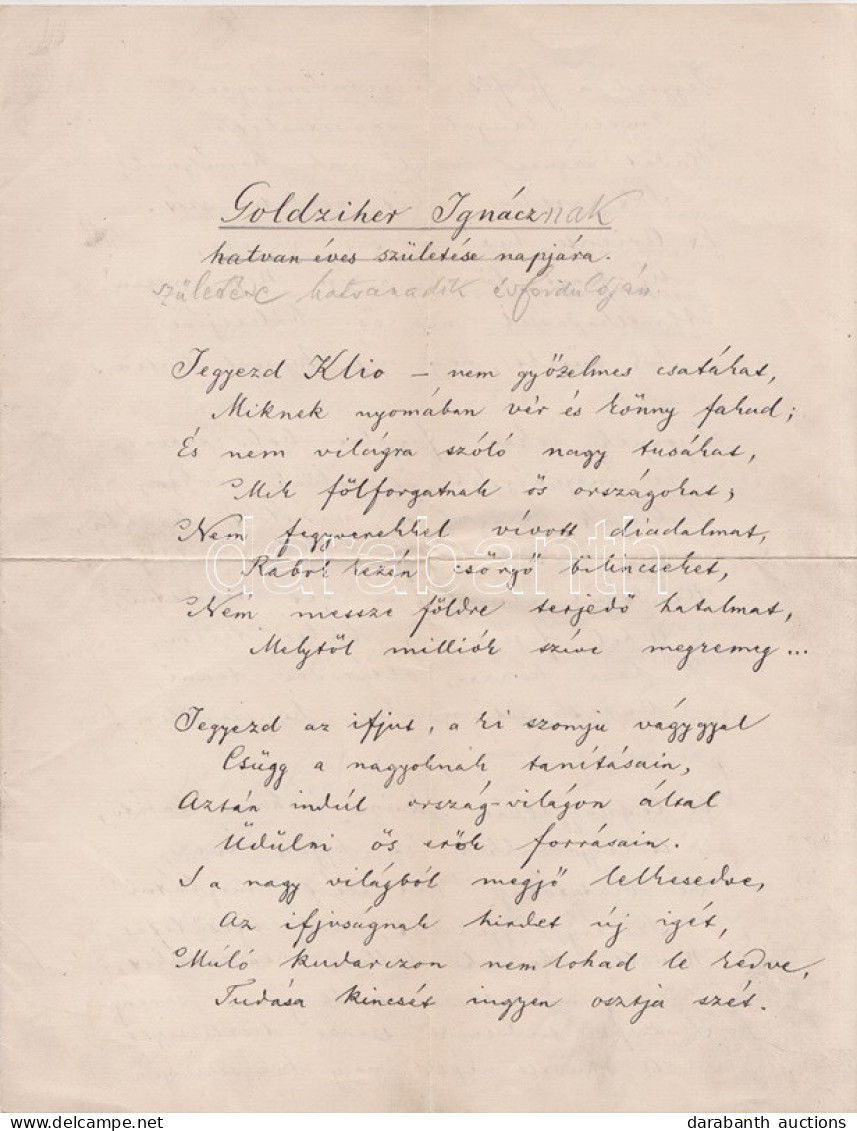 Goldziher Ignácznak
hatvan éves születése napjára.
születése hatvanadik évfordulóján.
Jegyezd Klio – nem győzelmes csatákat,
Miknek nyomában vér és könny fakad;
És nem világra szóló nagy tusákat,
Mik fölforgatnak ős országokat;
Nem fegyverekkel vívott diadalmat,
Rabok kezén csörgő bilincseket,
Nem messze földre terjedő hatalmat,
Melytől milliók szíve megremeg...
Jegyezd az ifjut, a ki szomju vágygyal
Csügg a nagyoknak tanításain,
Aztán indúl ország-világon által
Üdülni ős erők forrásain.
S a nagy világból megjő lelkesedve,
Az ifjuságnak hirdet új igét,
Múló kudarczon nem lohad le kedve,
Tudása kincsét ingyen osztja szét.
darabanth
darabanth auctions